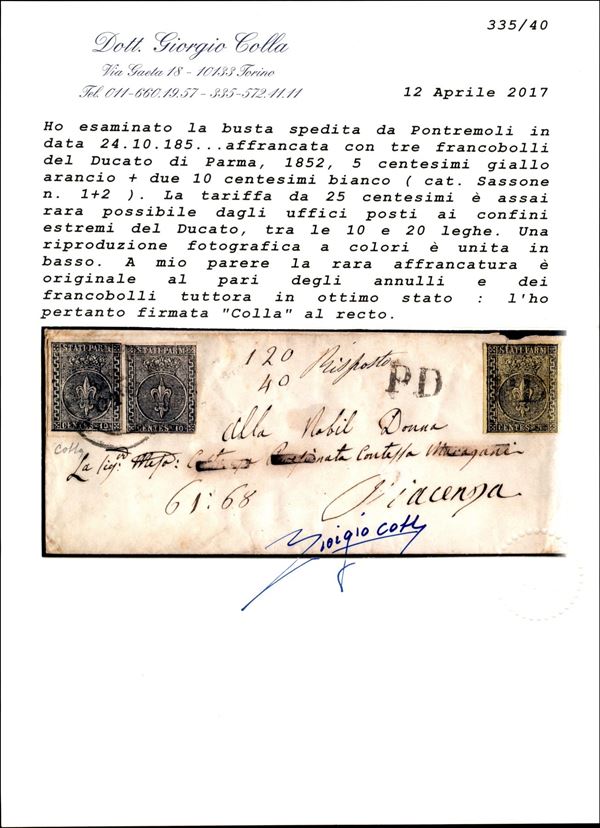 335/40
Dott. Giorgio Colla
Via Gaeta 18 - 10133 Torino
Tel. 011-660.19.57 - 335-572.41.11
12 Aprile 2017
Ho esaminato la busta spedita da Pontremoli in
data 24.10.185...affrancata con tre francobolli
del Ducato di Parma, 1852, 5 centesimi giallo
arancio + due 10 centesimi bianco ( cat. Sassone
n. 1+2 ). La tariffa da 25 centesimi è assai
rara possibile dagli uffici posti ai confini
estremi del Ducato, tra le 10 e 20 leghe. Una
riproduzione fotografica a colori è unita in
basso. A mio parere la rara affrancatura è
originale al pari degli annulli e dei
francobolli tuttora in ottimo stato : l'ho
pertanto firmata "Colla" al recto.
STATI PARM
STATI PARM
STATI PARM
CENTES. 10
CENTES. 10
CENTES. 5
120
40
Risposto
PD
Alla Nobil Donna
Colla
La Sig.ra Contessa
61:68
Piacenza
Giorgio Colla